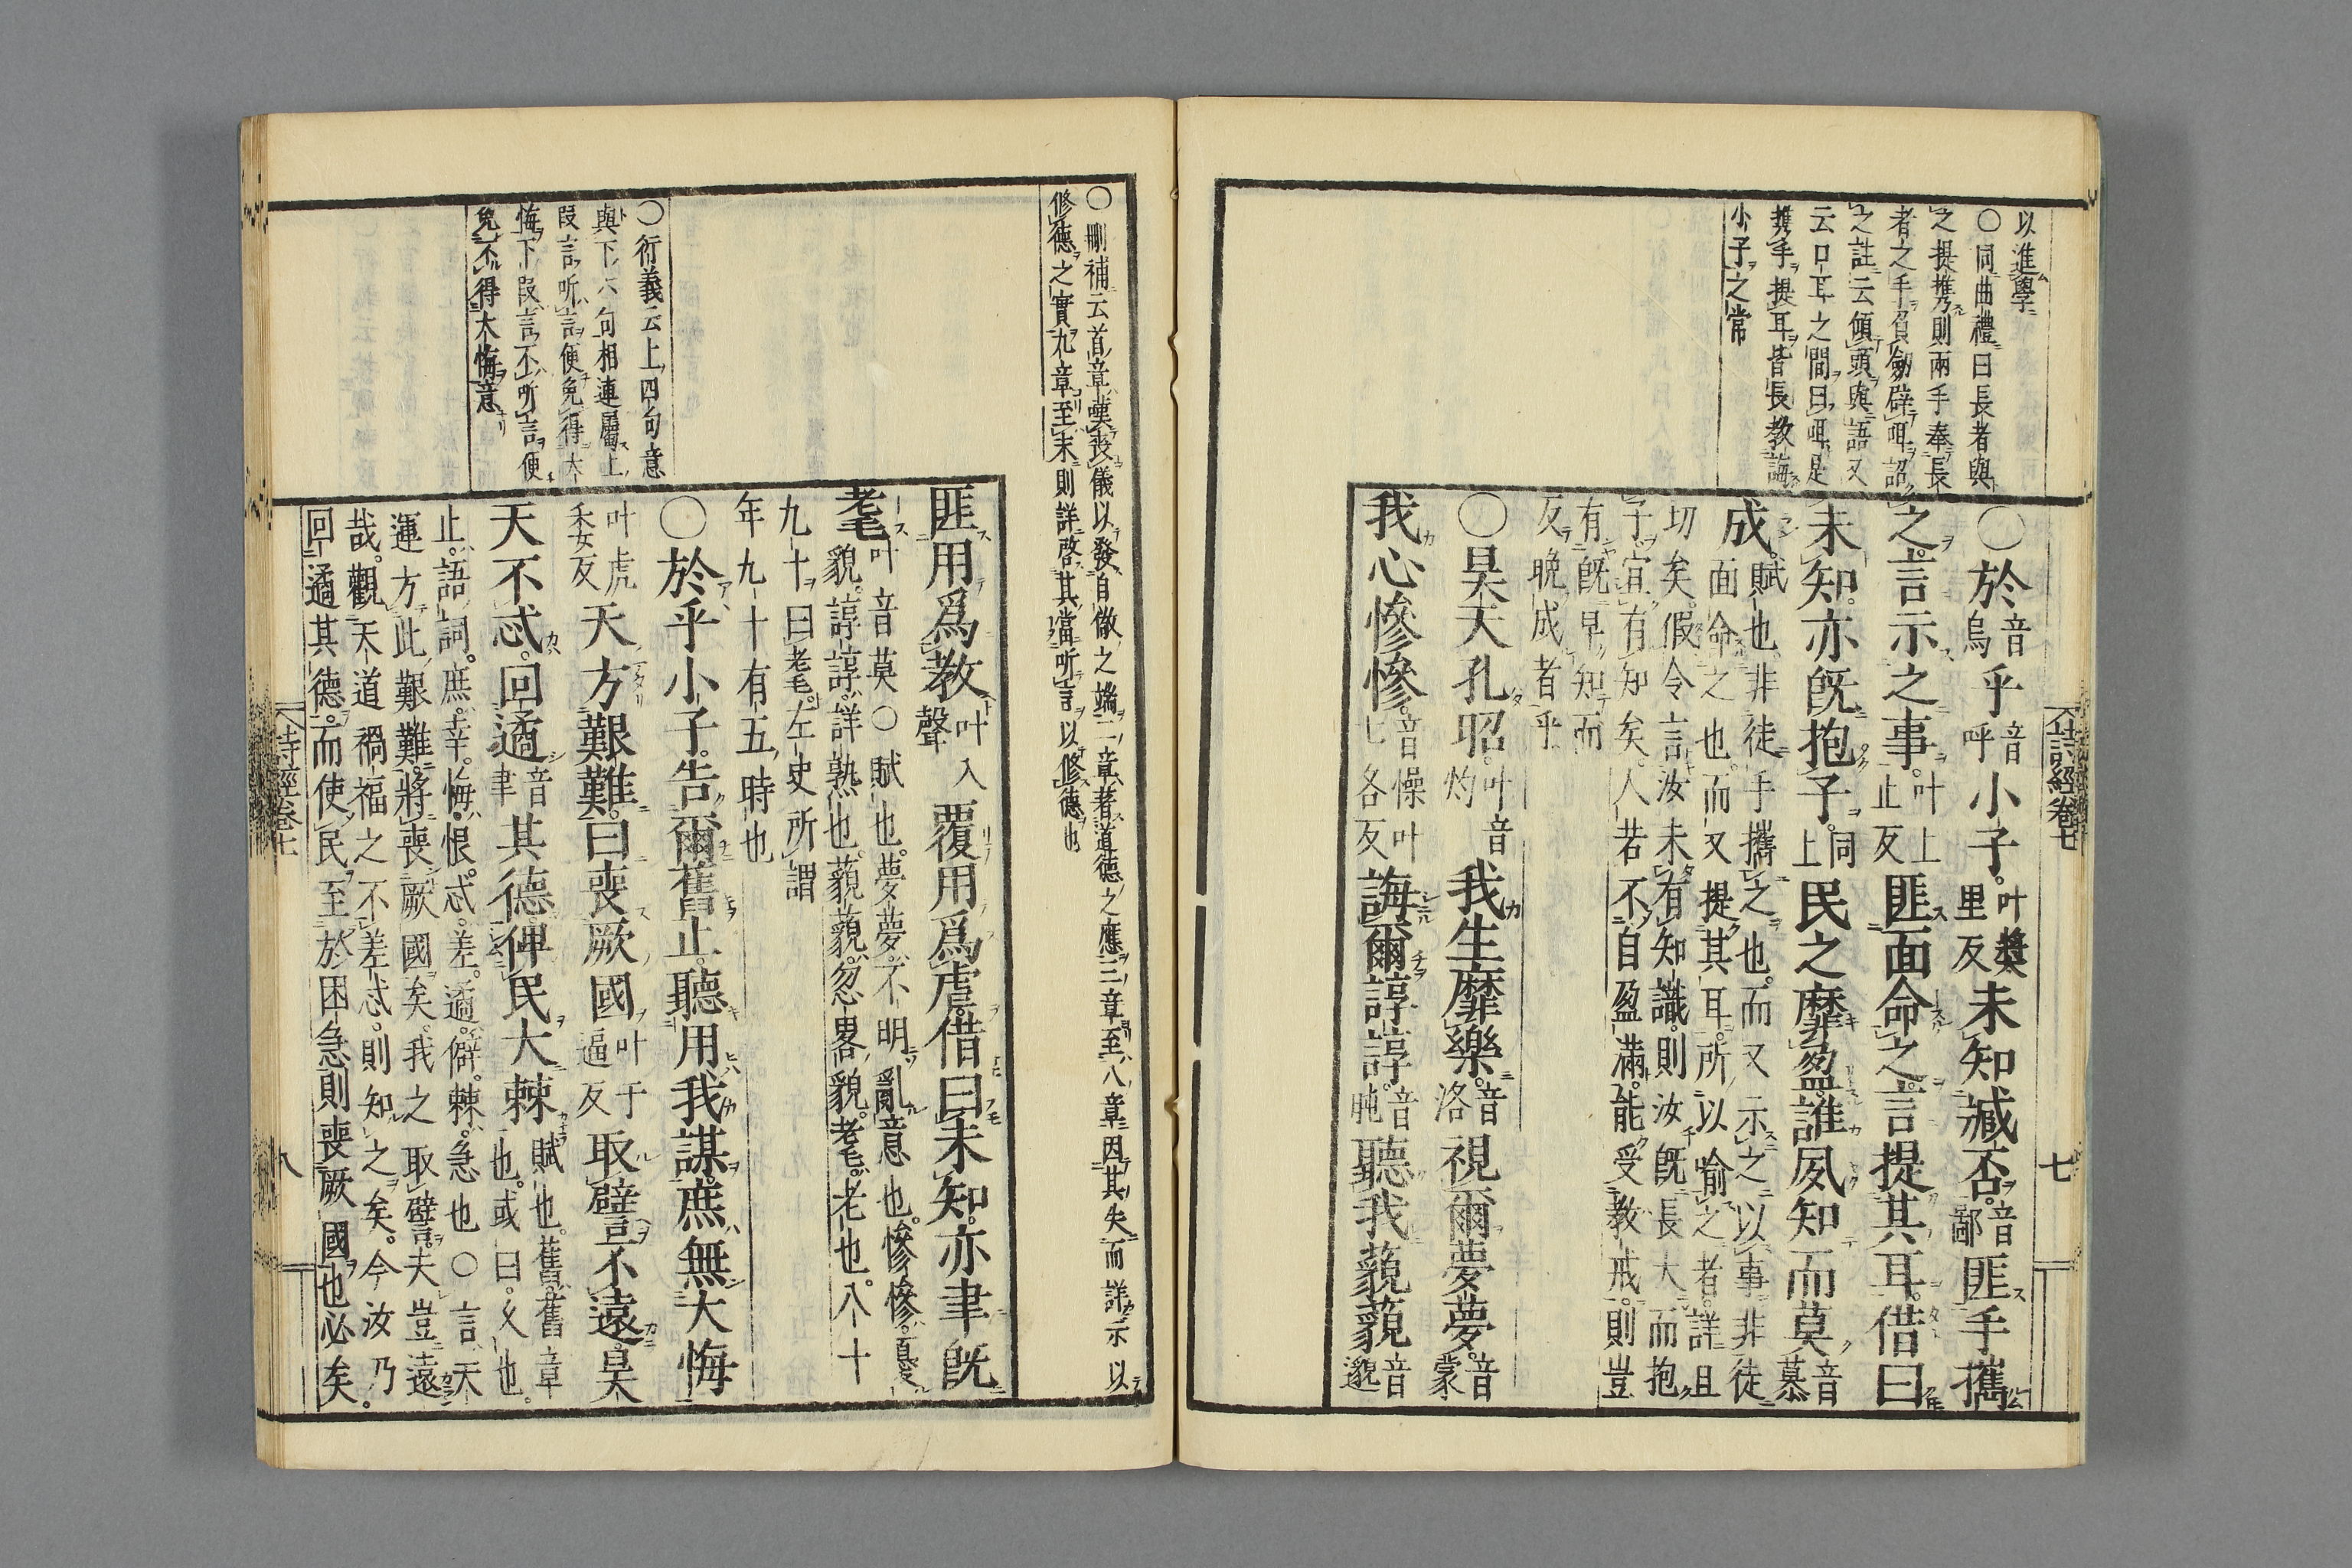 以進學
○同曲禮曰長者與
之提携則兩手奉長
者之手負劒辟咡詔
之註云傾頭與語又
云口耳之間曰咡是
携手提耳皆長教誨
小子之常
○於音烏乎音呼小子叶奬里反未知臧否音鄙匪手攜
之言示之事叶上止反匪面命之言提其耳借曰
未知亦既抱子同上民之靡盈誰夙知而莫音慕
成賦也非徒手攜之也而又示之以事非徒
面命之也而又提其耳所以喻之者詳且
切矣假令言汝未有知識則汝既長大而抱
子宜有知矣人若不自盈滿能受教戒則豈
有既早知而
反晩成者乎
○昊天孔昭叶音灼我生靡樂音洛視爾夢夢音蒙
我心慘慘音懆叶七各反誨爾諄諄音肫聽我藐藐音邈
仝詩經卷七
七
○刪補云首章嘆喪儀以發自儆之端二章著道德之應三章至八章因其失而詳示以
修德之實九章至末則詳啓其當听言以修德也
匪用爲教叶入聲覆用爲虐借曰未知亦聿既
耄叶音莫○賦也夢夢不明亂意也慘慘憂
貌諄諄詳熟也藐藐忽畧貌耄老也八十
九十曰耄左史所謂
年九十有五時也
○衍義云上四句意
與下六句相連屬上
段言听言便免得大
悔下段言不听言便
免不得大悔意
○於乎小子告爾舊止聽用我謀庶無大悔
叶虎委反天方艱難曰喪厥國叶于逼反取譬不遠昊
天不忒回遹音聿其德俾民大棘賦也舊舊章也或曰久也
止語詞庶幸悔恨忒差遹僻棘急也○言天
運方此艱難將喪厥國矣我之取譬夫豈遠
哉觀天道禍福之不差忒則知之矣今汝乃
回遹其德而使民至於困急則喪厥國也必矣
詩經卷七
八